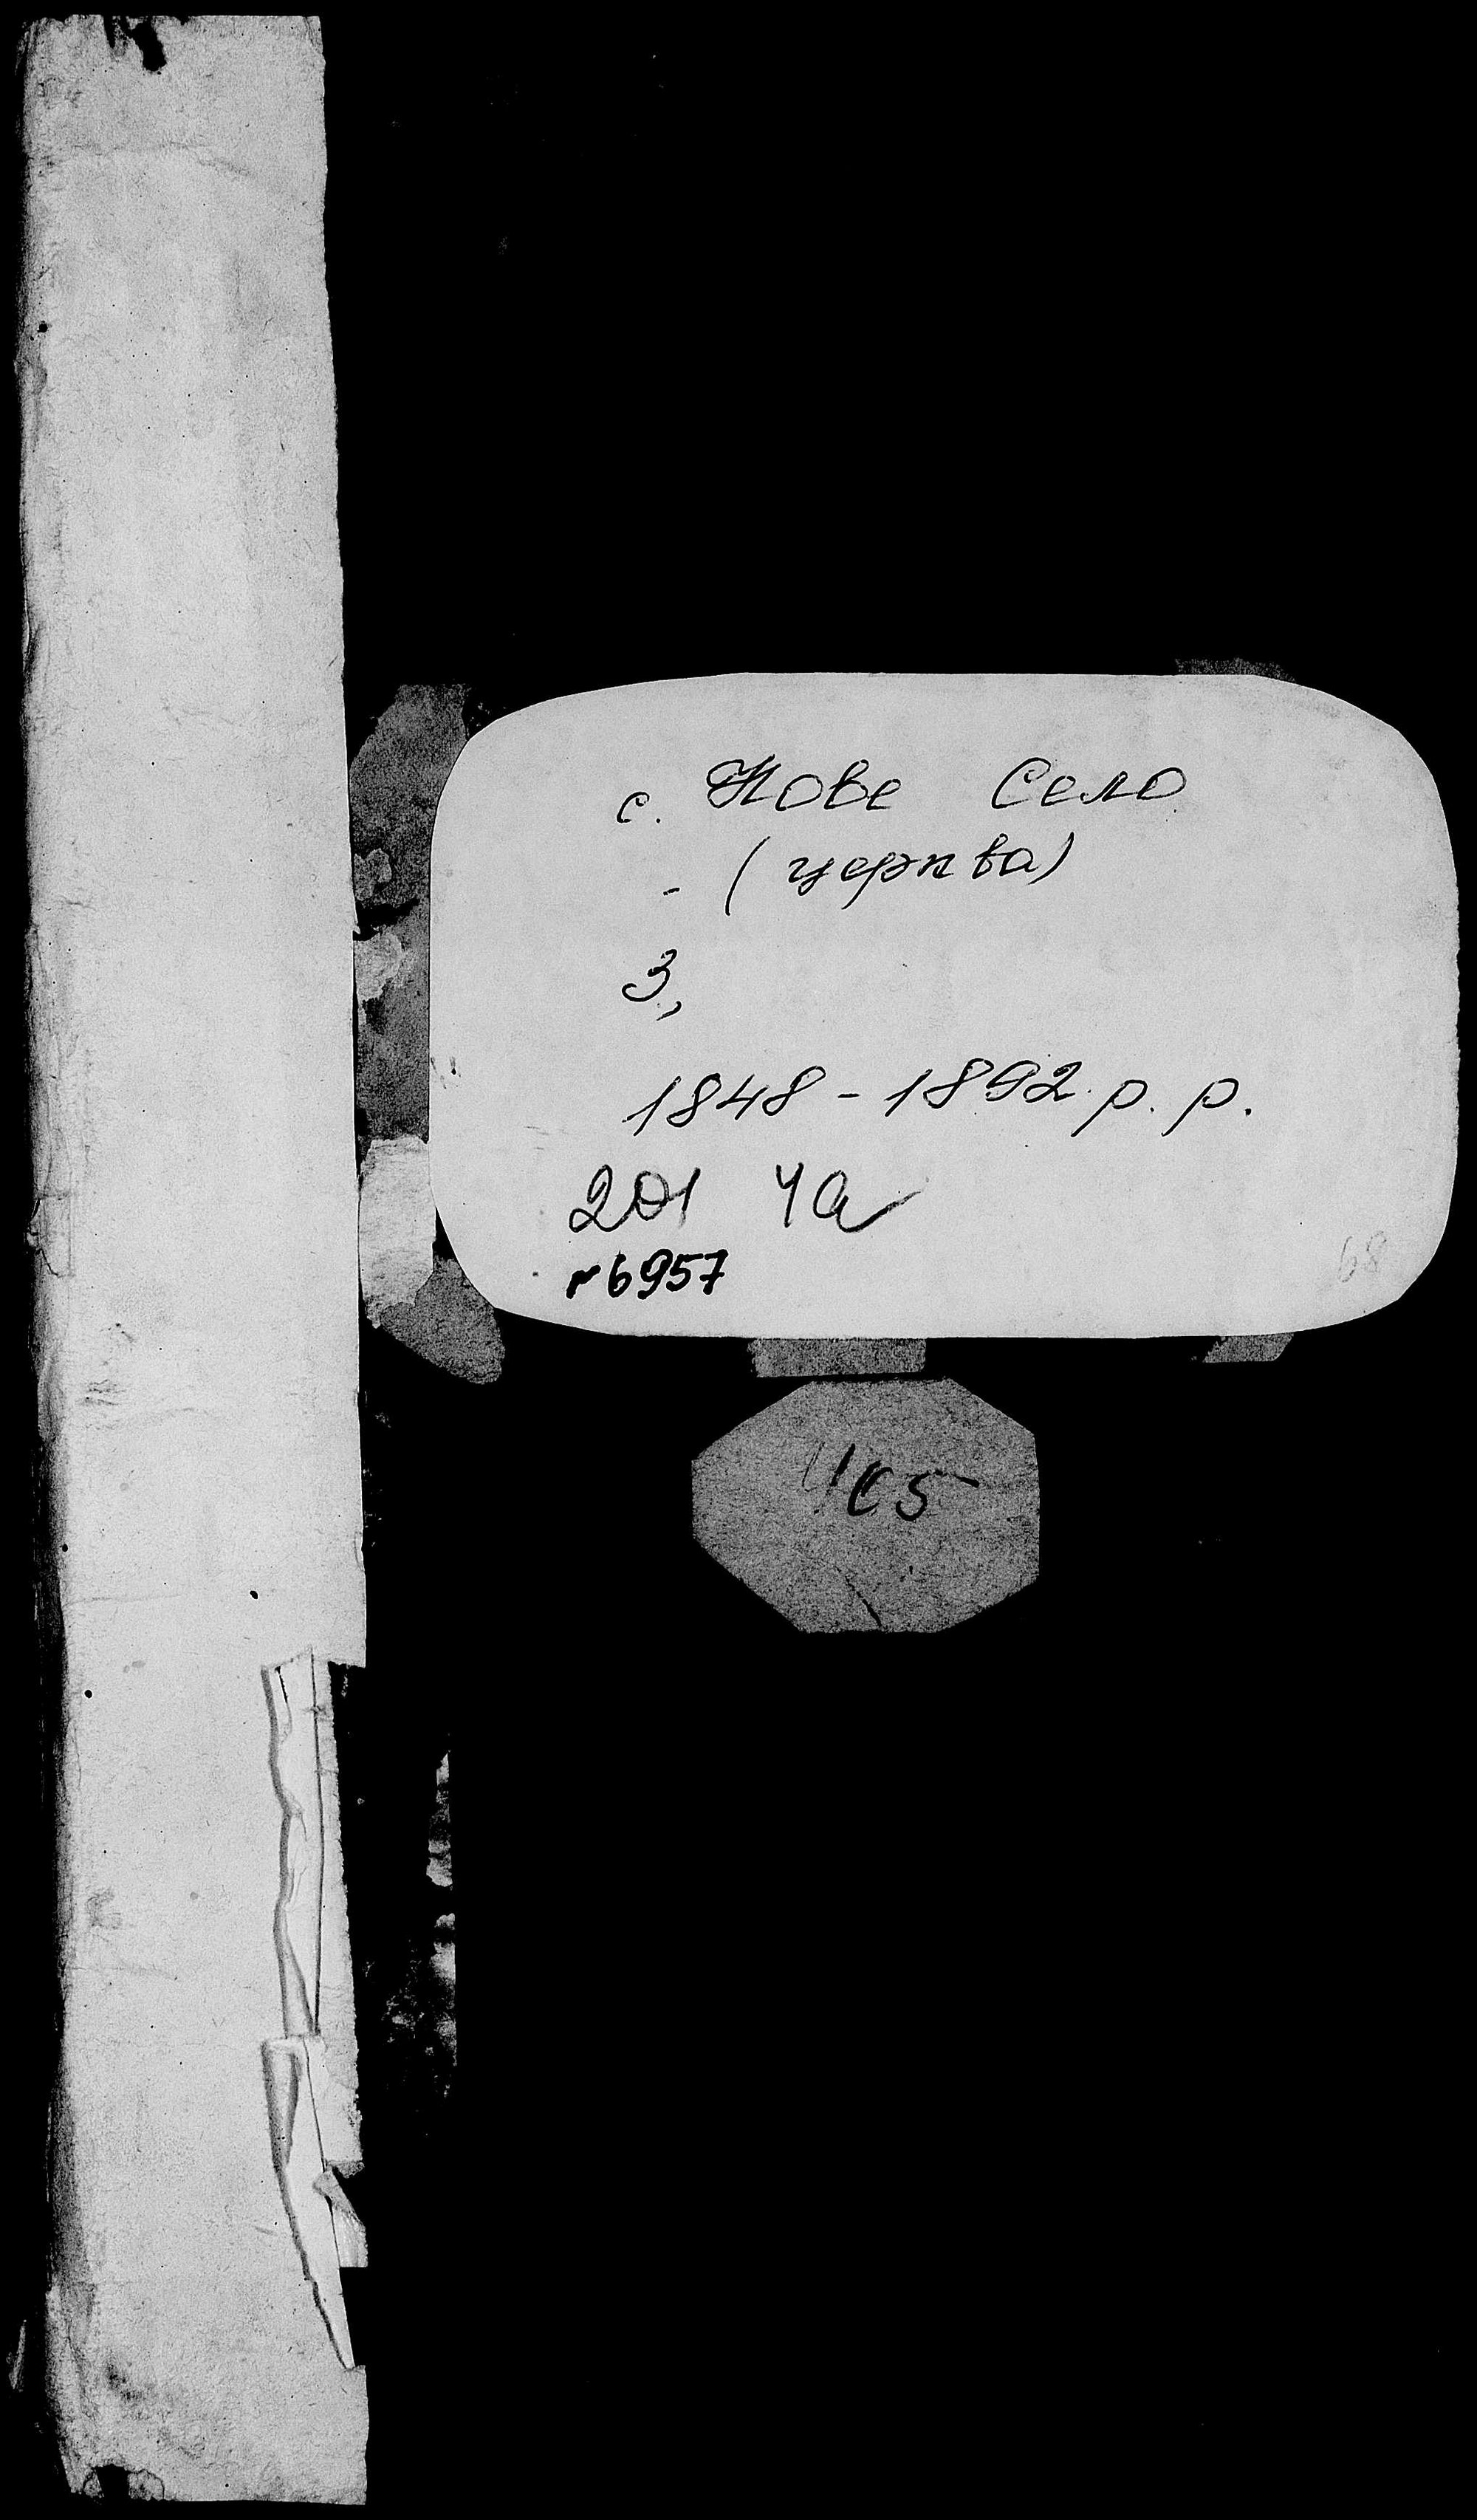 с. Нове Село
- (церква)
3,
1848-1892 р. р.
201 4а
№6957
68